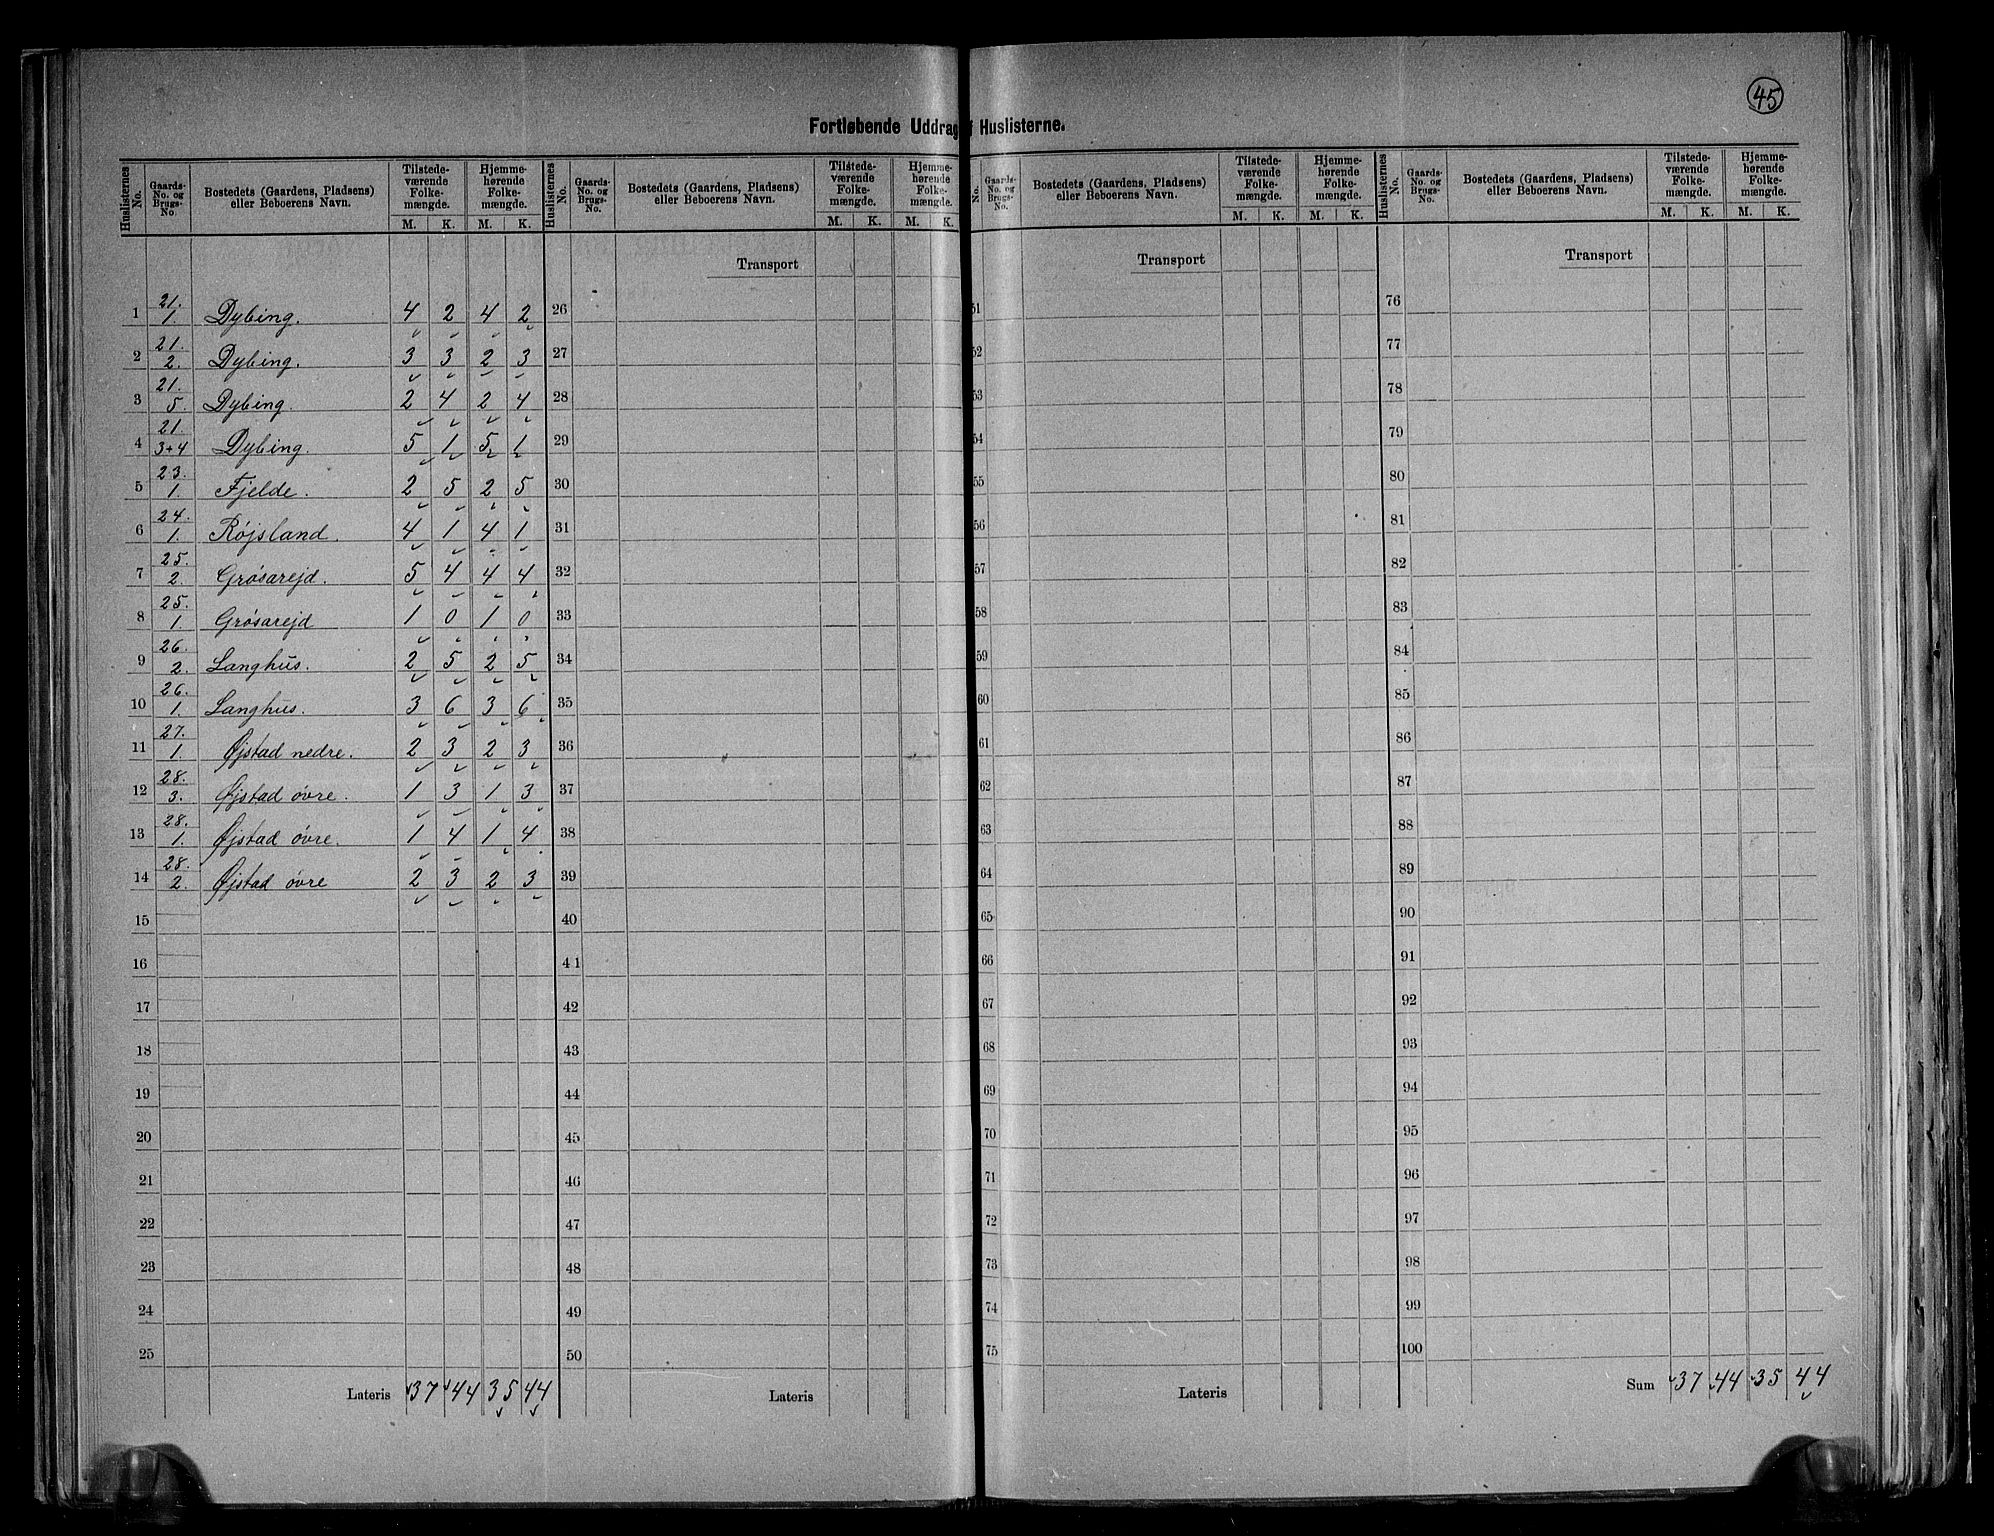 45
Fortløbende Uddrag f Huslisterne.
Huslisternes No. | Gaards-No. og Brugs-No. | Bostedets (Gaardens, Pladsens) eller Beboerens Navn. | Tilstede-værende Folke-mængde. M. K. | Hjemme-hørende Folke-mængde. M. K. | Huslisternes No. | Gaards-No. og Brugs-No. | Bostedets (Gaardens, Pladsens) eller Beboerens Navn. | Tilstede-værende Folke-mængde. M. K. | Hjemme-hørende Folke-mængde. M. K. | No. | Gaards-No. og Brugs-No. | Bostedets (Gaardens, Pladsens) eller Beboerens Navn. | Tilstede-værende Folke-mængde. M. K. | Hjemme-hørende Folke-mængde. M. K. | Huslisternes No. | Gaards-No. og Brugs-No. | Bostedets (Gaardens, Pladsens) eller Beboerens Navn. | Tilstede-værende Folke-mængde. M. K. | Hjemme-hørende Folke-mængde. M. K.
Transport Transport Transport
1 21. 1. Dybing. 4 2 4 2 26 51 76
2 21. 2. Dybing. 3 3 2 3 27 52 77
3 21. 5. Dybing. 2 4 2 4 28 53 78
4 21. 3+4 Dybing. 5 1 5 1 29 54 79
5 23. 1. Fjelde. 2 5 2 5 30 55 80
6 24. 1. Røjsland. 4 1 4 1 31 56 81
7 25. 2. Grøsarejd. 5 4 4 4 32 57 82
8 25. 1. Grøsarejd 1 0 1 0 33 58 83
9 26. 2. Langhus. 2 5 2 5 34 59 84
10 26. 1. Langhus. 3 6 3 6 35 60 85
11 27. 1. Øjstad nedre. 2 3 2 3 36 61 86
12 28. 3. Øjstad øvre. 1 3 1 3 37 62 87
13 28. 1. Øjstad øvre. 1 4 1 4 38 63 88
14 28. 2. Øjstad øvre 2 3 2 3 39 64 89
15 40 65 90
16 41 66 91
17 42 67 92
18 43 68 93
19 44 69 94
20 45 70 95
21 46 71 96
22 47 72 97
23 48 73 98
24 49 74 99
25 50 75 100
Lateris 37 44 35 44 Lateris Lateris Sum 37 44 35 44